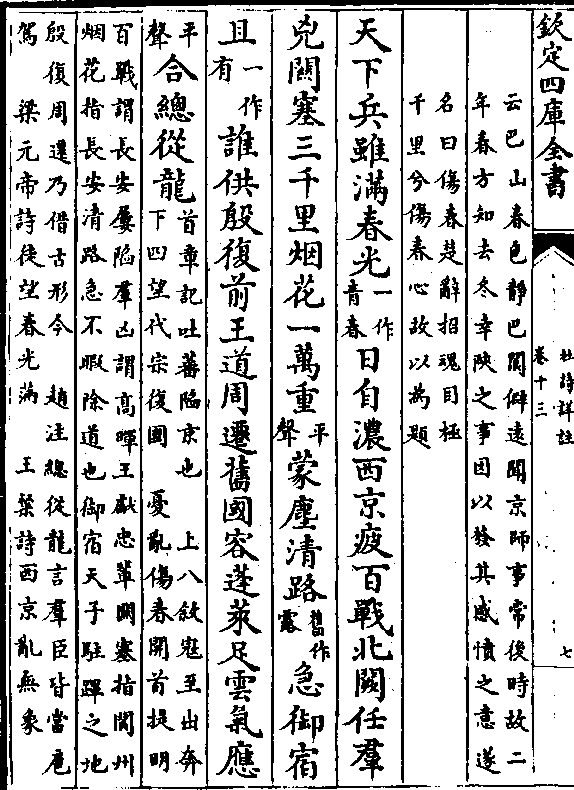 欽定四庫全書
杜詩詳註
卷十三
七
云巴山春色靜巴閬僻遠聞京師事常後時故二
年春方知去冬幸陜之事因以發其感憤之意遂
名曰傷春楚辭招魂目極
千里兮傷春心故以為題
天下兵雖滿春光一作青春日自濃西京疲百戰北闕任羣
兇關塞三千里烟花一萬重平聲蒙塵清路舊作露急御宿
且一作有誰供殷復前王道周遷舊國容蓬萊足雲氣應
平聲合總從龍首章記吐蕃陷京也 上八敘寇至出奔
下四望代宗復國 憂亂傷春開首提明
百戰謂長安屢陷羣凶謂高暉王獻忠輩關塞指閬州
烟花指長安清路急不暇除道也御宿天子駐蹕之地
殷復周遷乃借古形今 趙注總從龍言羣臣皆當扈
駕 梁元帝詩徒望春光滿 王粲詩西京亂無象